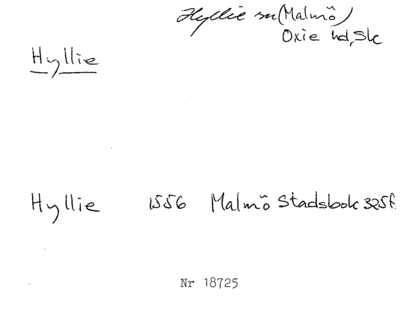 Hyllie sn (Malmö)
Oxie hd, Sk
Hyllie
Hyllie 1556 Malmö Stadsbok 325f.
Nr 18725